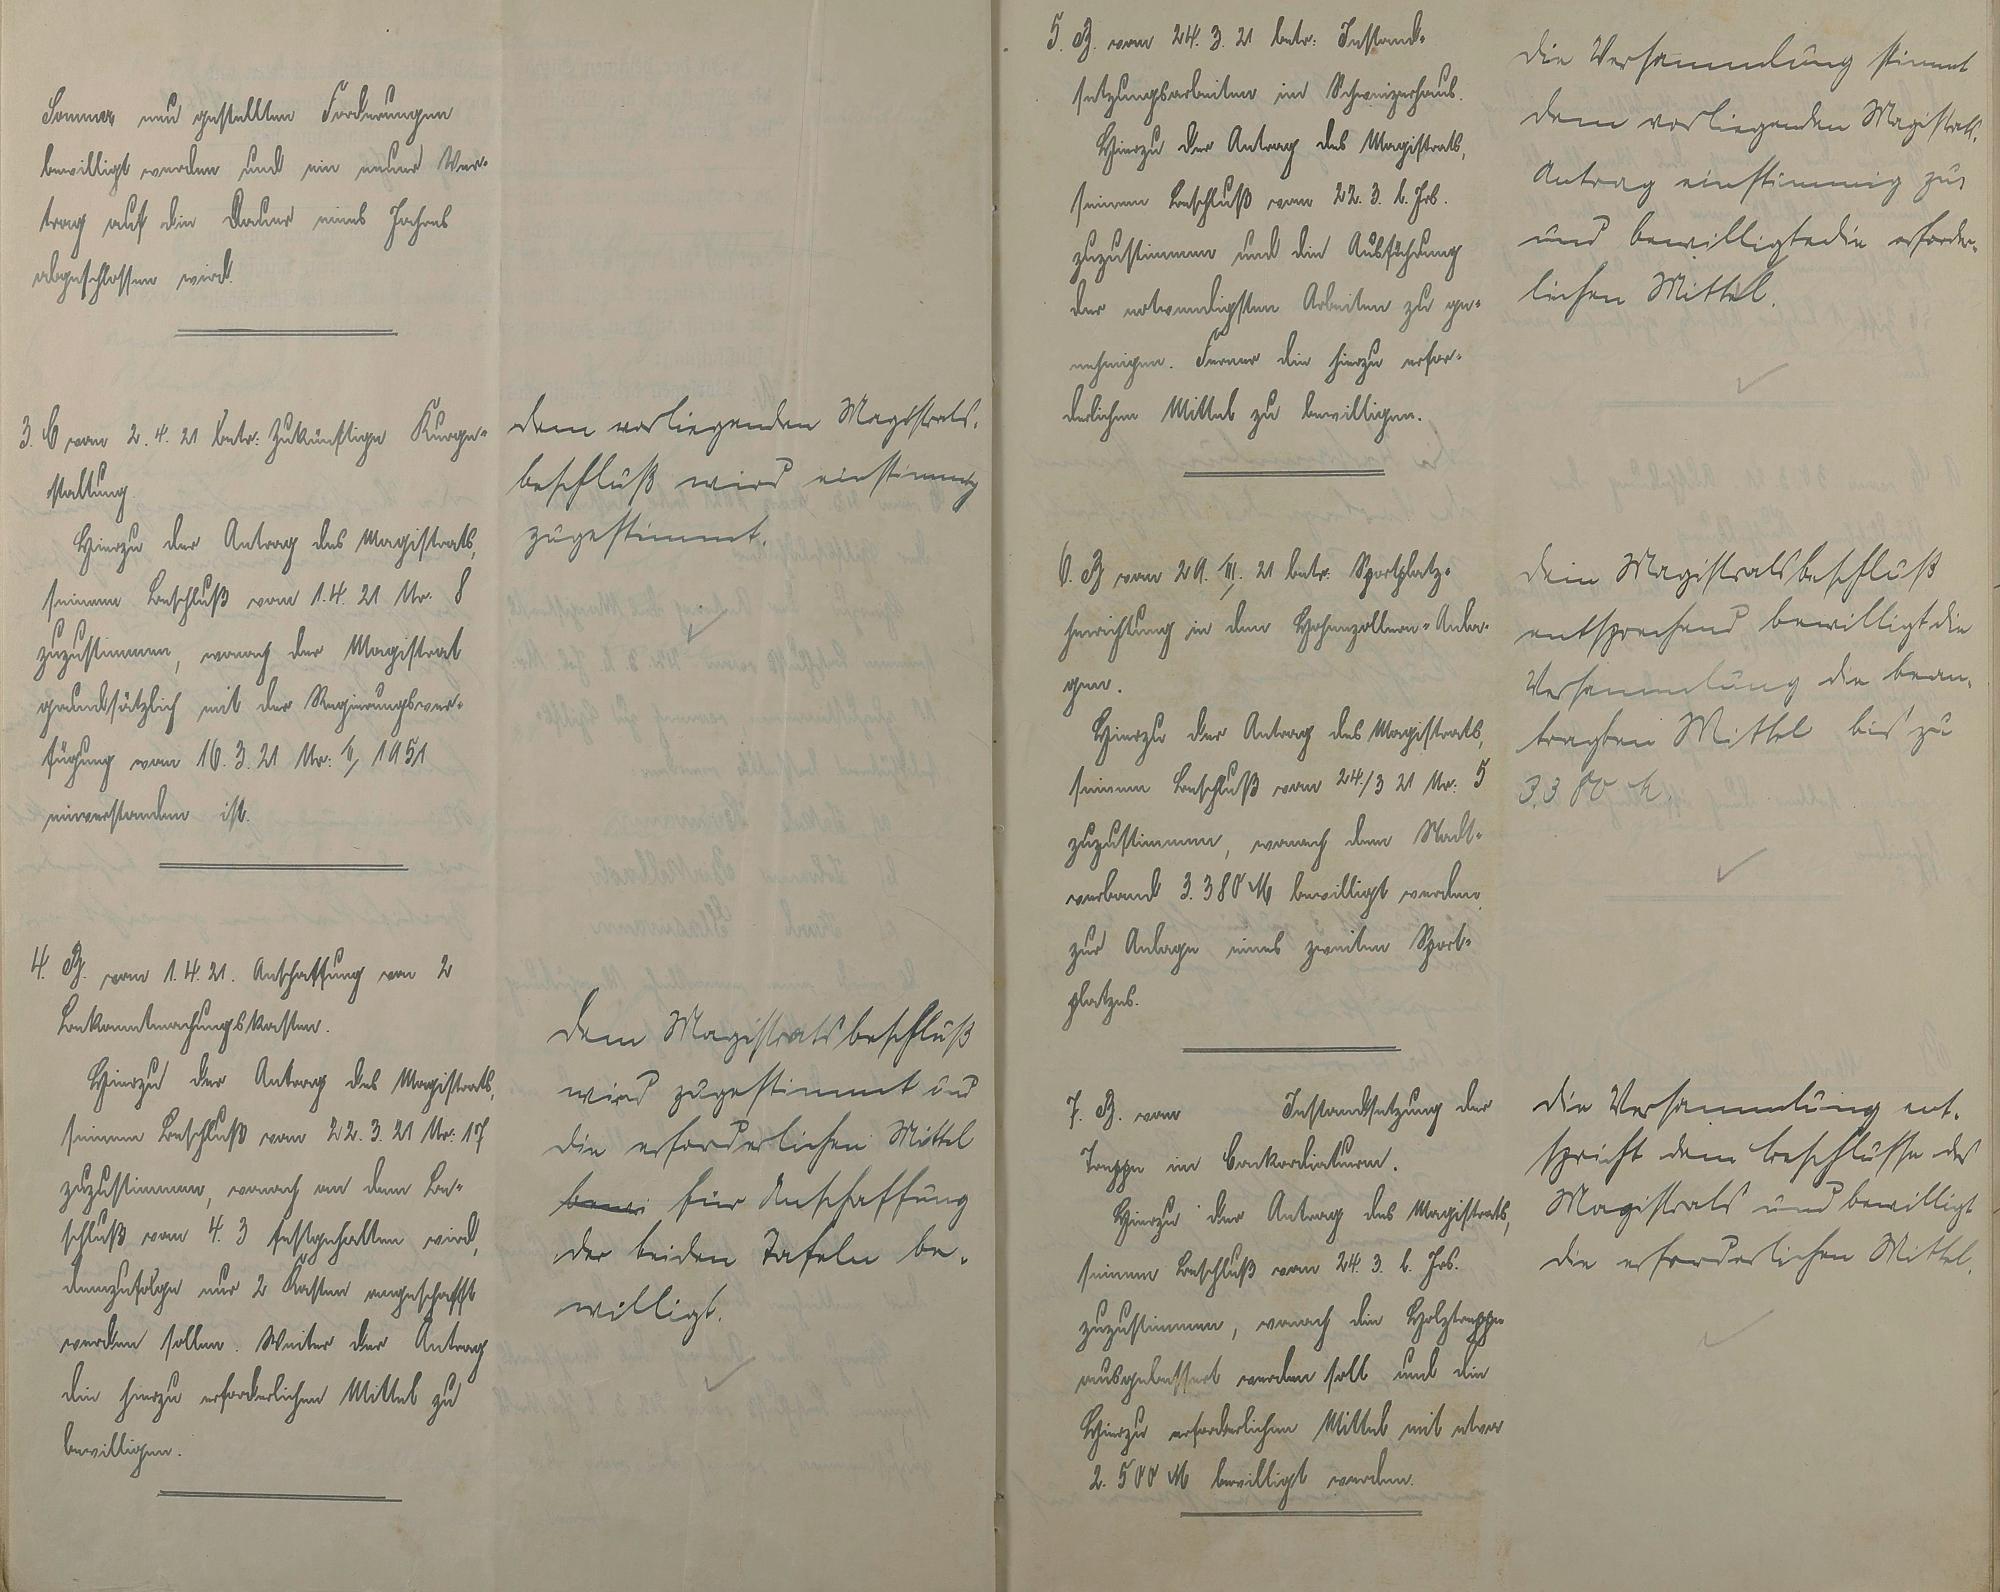 Sommer neu gestellten Forderungen
bewilligt werden und ein neuer Ver-
trag auf die Dauer eines Jahres
abgeschlossen wird.
3. C vom 2.4.21 betr: Zukünftige Kurge-
staltung.
Hierzu der Antrag des Magistrats,
seinem Beschluß vom 1.4.21 Nr. 8
zuzustimmen, wonach der Magistrat
grundsätzlich mit der Regierungsver-
fügung vom 16.3.21 Nr: 1951
einverstanden ist.
dem vorliegenden Magistrats-
beschluß wird einstimmig
zugestimmt.
4. B. vom 1.4.21. Anschaffung von 2
Bekanntmachungskasten.
Hierzu der Antrag des Magistrats,
seinem Beschluß vom 22.3.21 Nr: 17
zuzustimmen, wonach an dem Be-
schluß vom 4.3 festgehalten wird,
demzufolge nur 2 Kasten angeschafft
werden sollen. Weiter der Antrag
die hierzu erforderlichen Mittel zu
bewilligen.
dem Magistratsbeschluß
wird zugestimmt und
die erforderlichen Mittel
bewi für Anschaffung
der beiden Tafeln be-
willigt.
5. B. vom 24.3.21 betr: Instand-
setzungsarbeiten im Schweizerhaus.
Hierzu der Antrag des Magistrats,
seinem Beschluß vom 22.3. l. Jrs.
zuzustimmen und die Ausführung
der notwendigsten Arbeiten zu ge-
nehmigen. Ferner die hierzu erfor-
derlichen Mittel zu bewilligen.
die Versammlung stimmt
dem vorliegenden Magistrats-
Antrag einstimmig zu
und bewilligte die erforder-
lichen Mittel.
6. B vom 29.III.21 betr: Sportplatz-
herrichtung in den Hohenzollern-Anla-
gen.
Hierzu der Antrag des Magistrats,
seinem Beschluß vom 24./3 21 Nr: 5
zuzustimmen, wonach dem Stadt-
verband 3.380 M bewilligt werden
zur Anlage eines zweiten Sport-
platzes.
dem Magistratsbeschluß
entsprechend bewilligt die
Versammlung die bean-
tragten Mittel bis zu
3.380 M.
7. B. vom Instandsetzung der
Treppe im Conkordiaturm.
Hierzu der Antrag des Magistrats,
seinem Beschluß vom 24.3. l. Jrs.
zuzustimmen, wonach die Holztreppe
ausgebessert werden soll und die
hierzu erforderlichen Mittel mit etwa
2.500 M bewilligt werden.
die Versammlung ent-
spricht dem Beschlusse des
Magistrats und bewilligt
die erforderlichen Mittel.